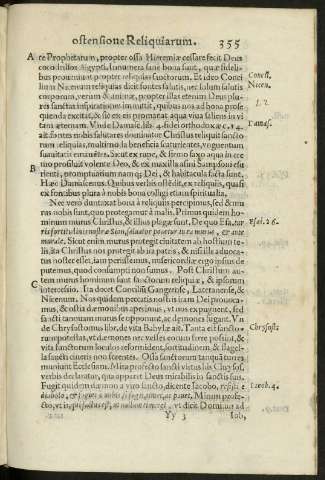 ostensione Reliquiarum. 355
A te Prophetarum, propter ossa Hieremiæ cessare fecit Deus
crocodrillos Ægypti, innumera sunt bona sunt, quæ fideli-
bus proueniunt propter reliquias sanctorum. Et ideo Concilium
Nicenum reliquias dicit fontes salutis, nec solum salutis
corporum, verum & animæ, propter istas eternim Deus plu-
res sanctas inspirationes immittit, quibus nos ad bona prose-
quenda excitat, & sic ex eis promanat aqua viua saliens in vi-
tam æternam. Vnde Damasc. lib. 4. fidei orthodoxæ c. 14.
ait fontes nobis salutares dominatur Christus reliquit sancto-
rum reliquias, multimo la beneficia scaturientes, voguentum
suauitatis
Sicut ex rupe, & firmo saxo aqua in ere-
mo profiluit volente Deo, & ex maxilla asini Sampsoni esu-
B rienti, promptuatium nam q; Dei, & habitacula facta sunt.
Hæc Damascenus. Quibus verbis ostēdit, ex reliquiis, quasi
ex fontibus plura à nobis bona colligi etiam spiritualia.
Nec vero duntaxat bona à reliquiis percipimus, sed & mu-
rus nobis sunt, quo protegamur à malis. Primus quidem ho-
minum murus Christus, & illius plagæ sunt. De quo Esa. vr
bs fortitudinis nostræ Sion, saluator ponetur in ea murus, & ante
murale. Sicut enim murus protegit ciuitatem ab hostium te-
lis, ita Christus nos protegit ab ira patris, & nisi illi aduoca-
tus noster esset, iam perissemus, misericordiæ ergo ipsius de-
putemus, quod consumpti non sumus. Post Christum au-
C tem murus hominum sunt sanctorum reliquiæ, & ipsorum
intercessio. Ita docet Concilia Gangrense, Lateranense, &
Nicenum. Nos quidem peccatis nostris iram Dei prouoca-
mus, & ostia dæmonibus aperimus, vt nos expugnent, sed
sancti tanquam muros se opponunt, ac dæmones fugant. Vn
de Chrysostomus libr. de vita Babylæ ait. Tanta est sancto-
rum potestas, vt dæmones nec vestes eorum ferre possint, &
vita sanctorum laruulos reformident, sortitudinem, & flagel-
la sancti cineris non ferentes. Ossa sanctorum tanquā turres
muniunt Ecclesiam. Mita profecto sancti virtus his Chrysos.
verbis declaratur, qua apparet Deus mirabilis in sanctis suis.
Fugit quidem dæmon a viro sancto, dicente Iacobo, resisti e
diabolo, & fugiet à vobis,
Minum profe-
cto, vt in,
vt dicit Dominus ad
Yy 3 Iob,
Concil.
Nicen.
1. 2.
Damas.
Esai. 26.
Chrysost:
Iacob. 4.